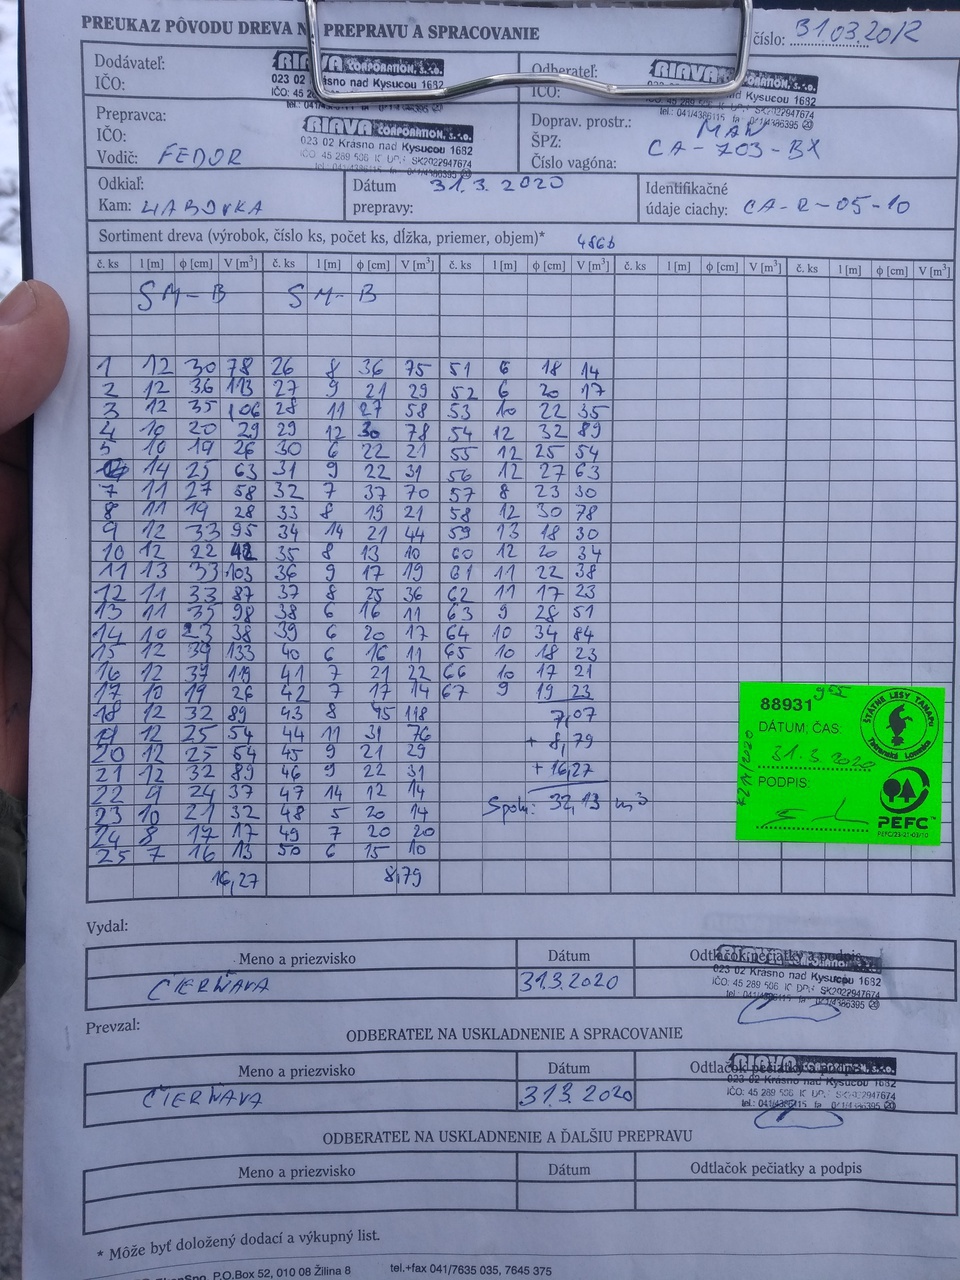 PREUKAZ PÔVODU DREVA NA PREPRAVU A SPRACOVANIE
číslo: 31.03.20/2
Dodávateľ: RIAVA CORPORATION, s.r.o. Odberateľ: RIAVA CORPORATION, s.r.o.
IČO: 023 02 Krásno nad Kysucou 1682 IČO: nad Kysucou 1682
Prepravca: RIAVA CORPORATION, s.r.o. Doprav. prostr.: MAN
IČO: 023 02 Krásno nad Kysucou 1682 ŠPZ: CA-703-BX
Vodič: FEDOR IČO: 45 289 506 IČ DPH: SK2022947674 Číslo vagóna:
Odkiaľ: Dátum 31.3.2020 Identifikačné
Kam: prepravy: údaje ciachy: CA-R-05-10
Sortiment dreva (výrobok, číslo ks, počet ks, dĺžka, priemer, objem)* 4866
č. ks l [m] ϕ [cm] V [m³] č. ks l [m] ϕ [cm] V [m³] č. ks l [m] ϕ [cm] V [m³] č. ks l [m] ϕ [cm] V [m³] č. ks l [m] ϕ [cm] V [m³]
SM-B SM-B
1 12 30 78 26 8 36 75 51 6 18 14
2 12 36 113 27 9 21 29 52 6 20 17
3 12 35 106 28 11 27 58 53 10 22 35
4 10 20 29 29 12 30 78 54 12 32 89
5 10 19 26 30 6 22 21 55 12 25 54
14 25 63 31 9 22 31 56 12 27 63
7 11 27 58 32 7 37 70 57 8 23 30
8 11 19 28 33 8 19 21 58 12 30 78
9 12 33 95 34 14 21 44 59 13 18 30
10 12 22 42 35 8 13 10 60 12 20 34
11 13 33 103 36 9 17 19 61 11 22 38
12 11 33 87 37 8 25 36 62 11 17 23
13 11 35 98 38 6 16 11 63 9 28 51
14 10 23 38 39 6 20 17 64 10 34 84
15 12 39 133 40 6 16 11 65 10 18 23
16 12 37 119 41 7 21 22 66 10 17 21
17 10 19 26 42 7 17 14 67 9 19 23
18 12 32 89 43 8 45 118 7,07
19 12 25 54 44 11 31 76 + 8,79
20 12 25 54 45 9 21 29
21 12 32 89 46 9 22 31 + 16,27
22 9 24 37 47 14 12 14 Spolu: 32,13 m³
23 10 21 32 48 5 20 14
24 8 17 17 49 7 20 20
25 7 16 13 50 6 15 10
16,27 8,79
88931 9⁴⁵
DÁTUM; ČAS:
31.3.2020
PODPIS:
ŠTÁTNE LESY TANAPu
Tatranská Lomnica
PEFC™
Vydal:
Meno a priezvisko Dátum Odtlačok pečiatky a podpis
ČIERŇAVA 31.3.2020 RIAVA CORPORATION, s.r.o.
023 02 Krásno nad Kysucou 1682
IČO: 45 289 506 IČ DPH: SK2022947674
Prevzal:
ODBERATEĽ NA USKLADNENIE A SPRACOVANIE
Meno a priezvisko Dátum Odtlačok pečiatky a podpis
ČIERŇAVA 31.3.2020 RIAVA CORPORATION, s.r.o.
023 02 Krásno nad Kysucou 1682
ODBERATEĽ NA USKLADNENIE A ĎALŠIU PREPRAVU
Meno a priezvisko Dátum Odtlačok pečiatky a podpis
* Môže byť doložený dodací a výkupný list.
P.O.Box 52, 010 08 Žilina 8 tel.+fax 041/7635 035, 7645 375